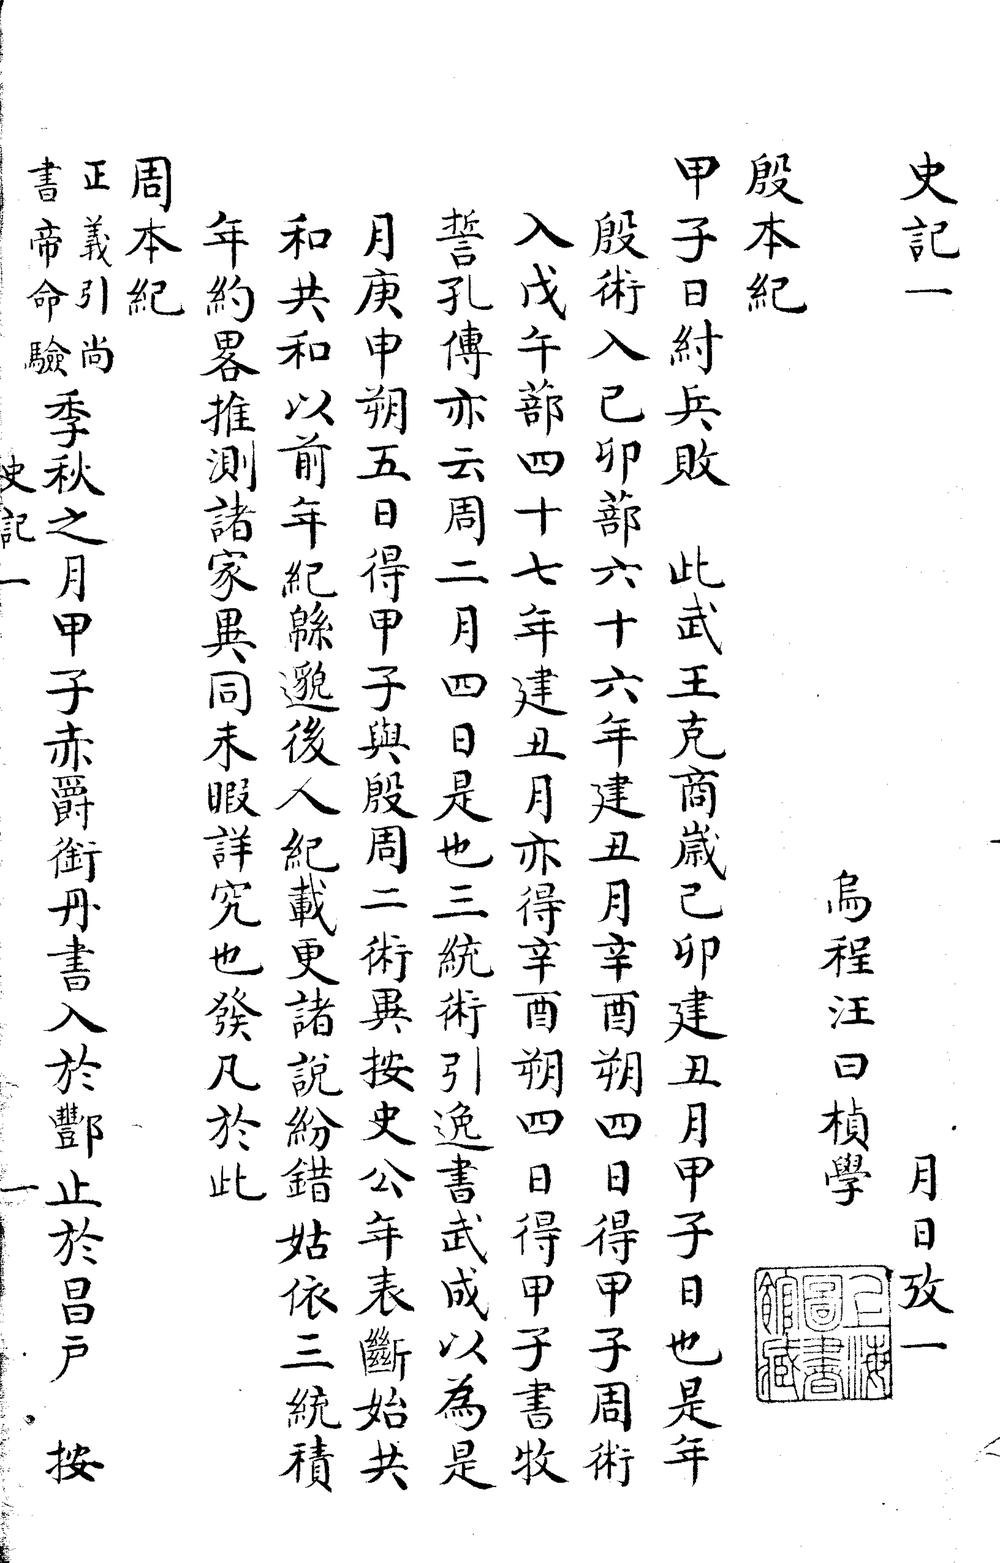 史記一　月日攷一
烏程汪曰楨學
上海圖書館藏
殷本紀
甲子日紂兵敗　此武王克商歲己卯建丑月甲子日也是年
殷術入己卯蔀六十六年建丑月辛酉朔四日得甲子周術
入戊午蔀四十七年建丑月亦得辛酉朔四日得甲子書牧
誓孔傳亦云周二月四日是也三統術引逸書武成以為是
月庚申朔五日得甲子與殷周二術異按史公年表斷始共
和共和以前年紀緜邈後人紀載更諸說紛錯姑依三統積
年約畧推測諸家異同未暇詳究也發凡於此
周本紀
正義引尚
書帝命驗
季秋之月甲子赤爵銜丹書入於酆止於昌戶　按
史記一
一